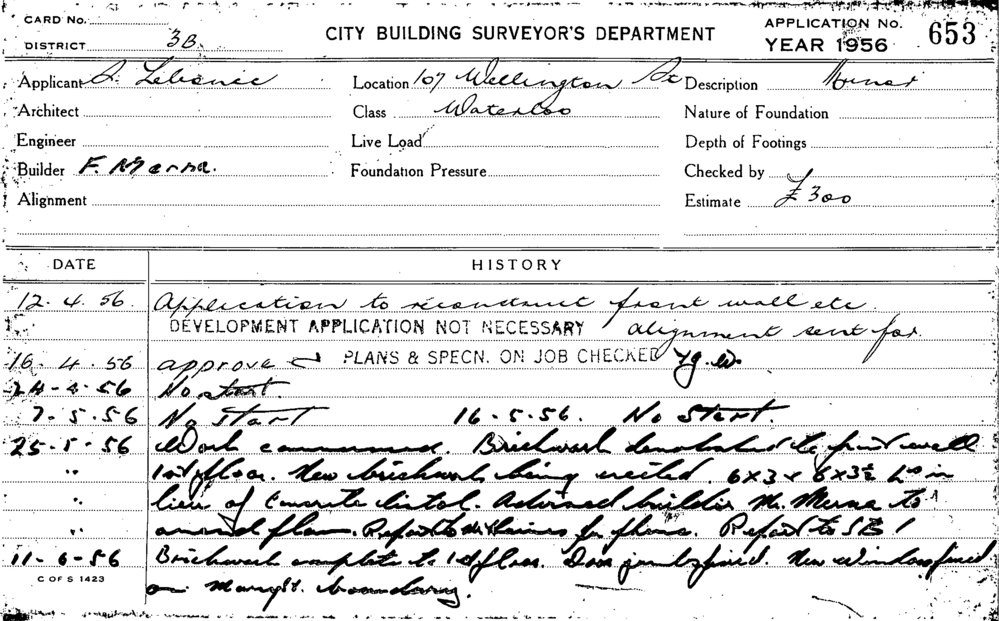 CARD NO.
DISTRICT 3B
CITY BUILDING SURVEYOR'S DEPARTMENT
APPLICATION NO.
YEAR 1956 653
Applicant
Location 107 Wellington St
Description
Architect
Class Waterloo
Nature of Foundation
Engineer
Live Load
Depth of Footings
Builder F. Merna.
Foundation Pressure
Checked by
Alignment
Estimate £300
DATE HISTORY
12.4.56. Application to reconstruct front wall etc
DEVELOPMENT APPLICATION NOT NECESSARY alignment sent for
16.4.56 approve PLANS & SPECN. ON JOB CHECKED
24-4-56 No start.
7-5-56 No start 16-5-56. No Start.
25-5-56 Work commenced. Brickwork demolished to front wall
" 1st floor. New brickwork being erected. 6x3x 6x3½ in
" lieu of Concrete lintol. Advised builder Mr. Merna to
" amend plan. Report to Mr for plans. Report to
11-6-56 Brickwork complete to 1st floor. Door jambs fixed. New Window fixed
C OF S 1423
on boundary.